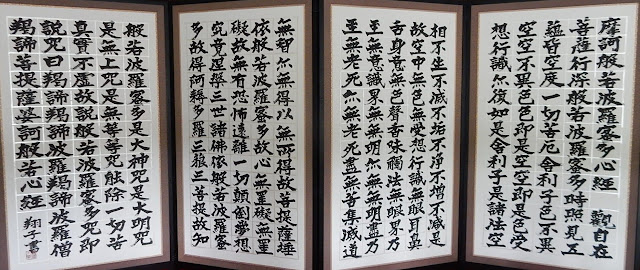 摩訶般若波羅蜜多心經 觀自在
菩薩行深般若波羅蜜多時照見五
蘊皆空度一切苦厄舍利子色不異
空空不異色色即是空空即是色受
想行識亦復如是舍利子是諸法空
相不生不滅不垢不淨不增不減是
故空中無色無受想行識無眼耳鼻
舌身意無色聲香味觸法無眼界乃
至無意識界無無明亦無無明盡乃
至無老死亦無老死盡無苦集滅道
無智亦無得以無所得故菩提薩埵
依般若波羅蜜多故心無罣礙無罣
礙故無有恐怖遠離一切顛倒夢想
究竟涅槃三世諸佛依般若波羅蜜
多故得阿耨多羅三藐三菩提故知
般若波羅蜜多是大神咒是大明咒
是無上咒是無等等咒能除一切苦
真實不虛故說般若波羅蜜多咒即
說咒曰羯諦羯諦波羅羯諦波羅僧
羯諦菩提薩婆訶般若心經 翔子書